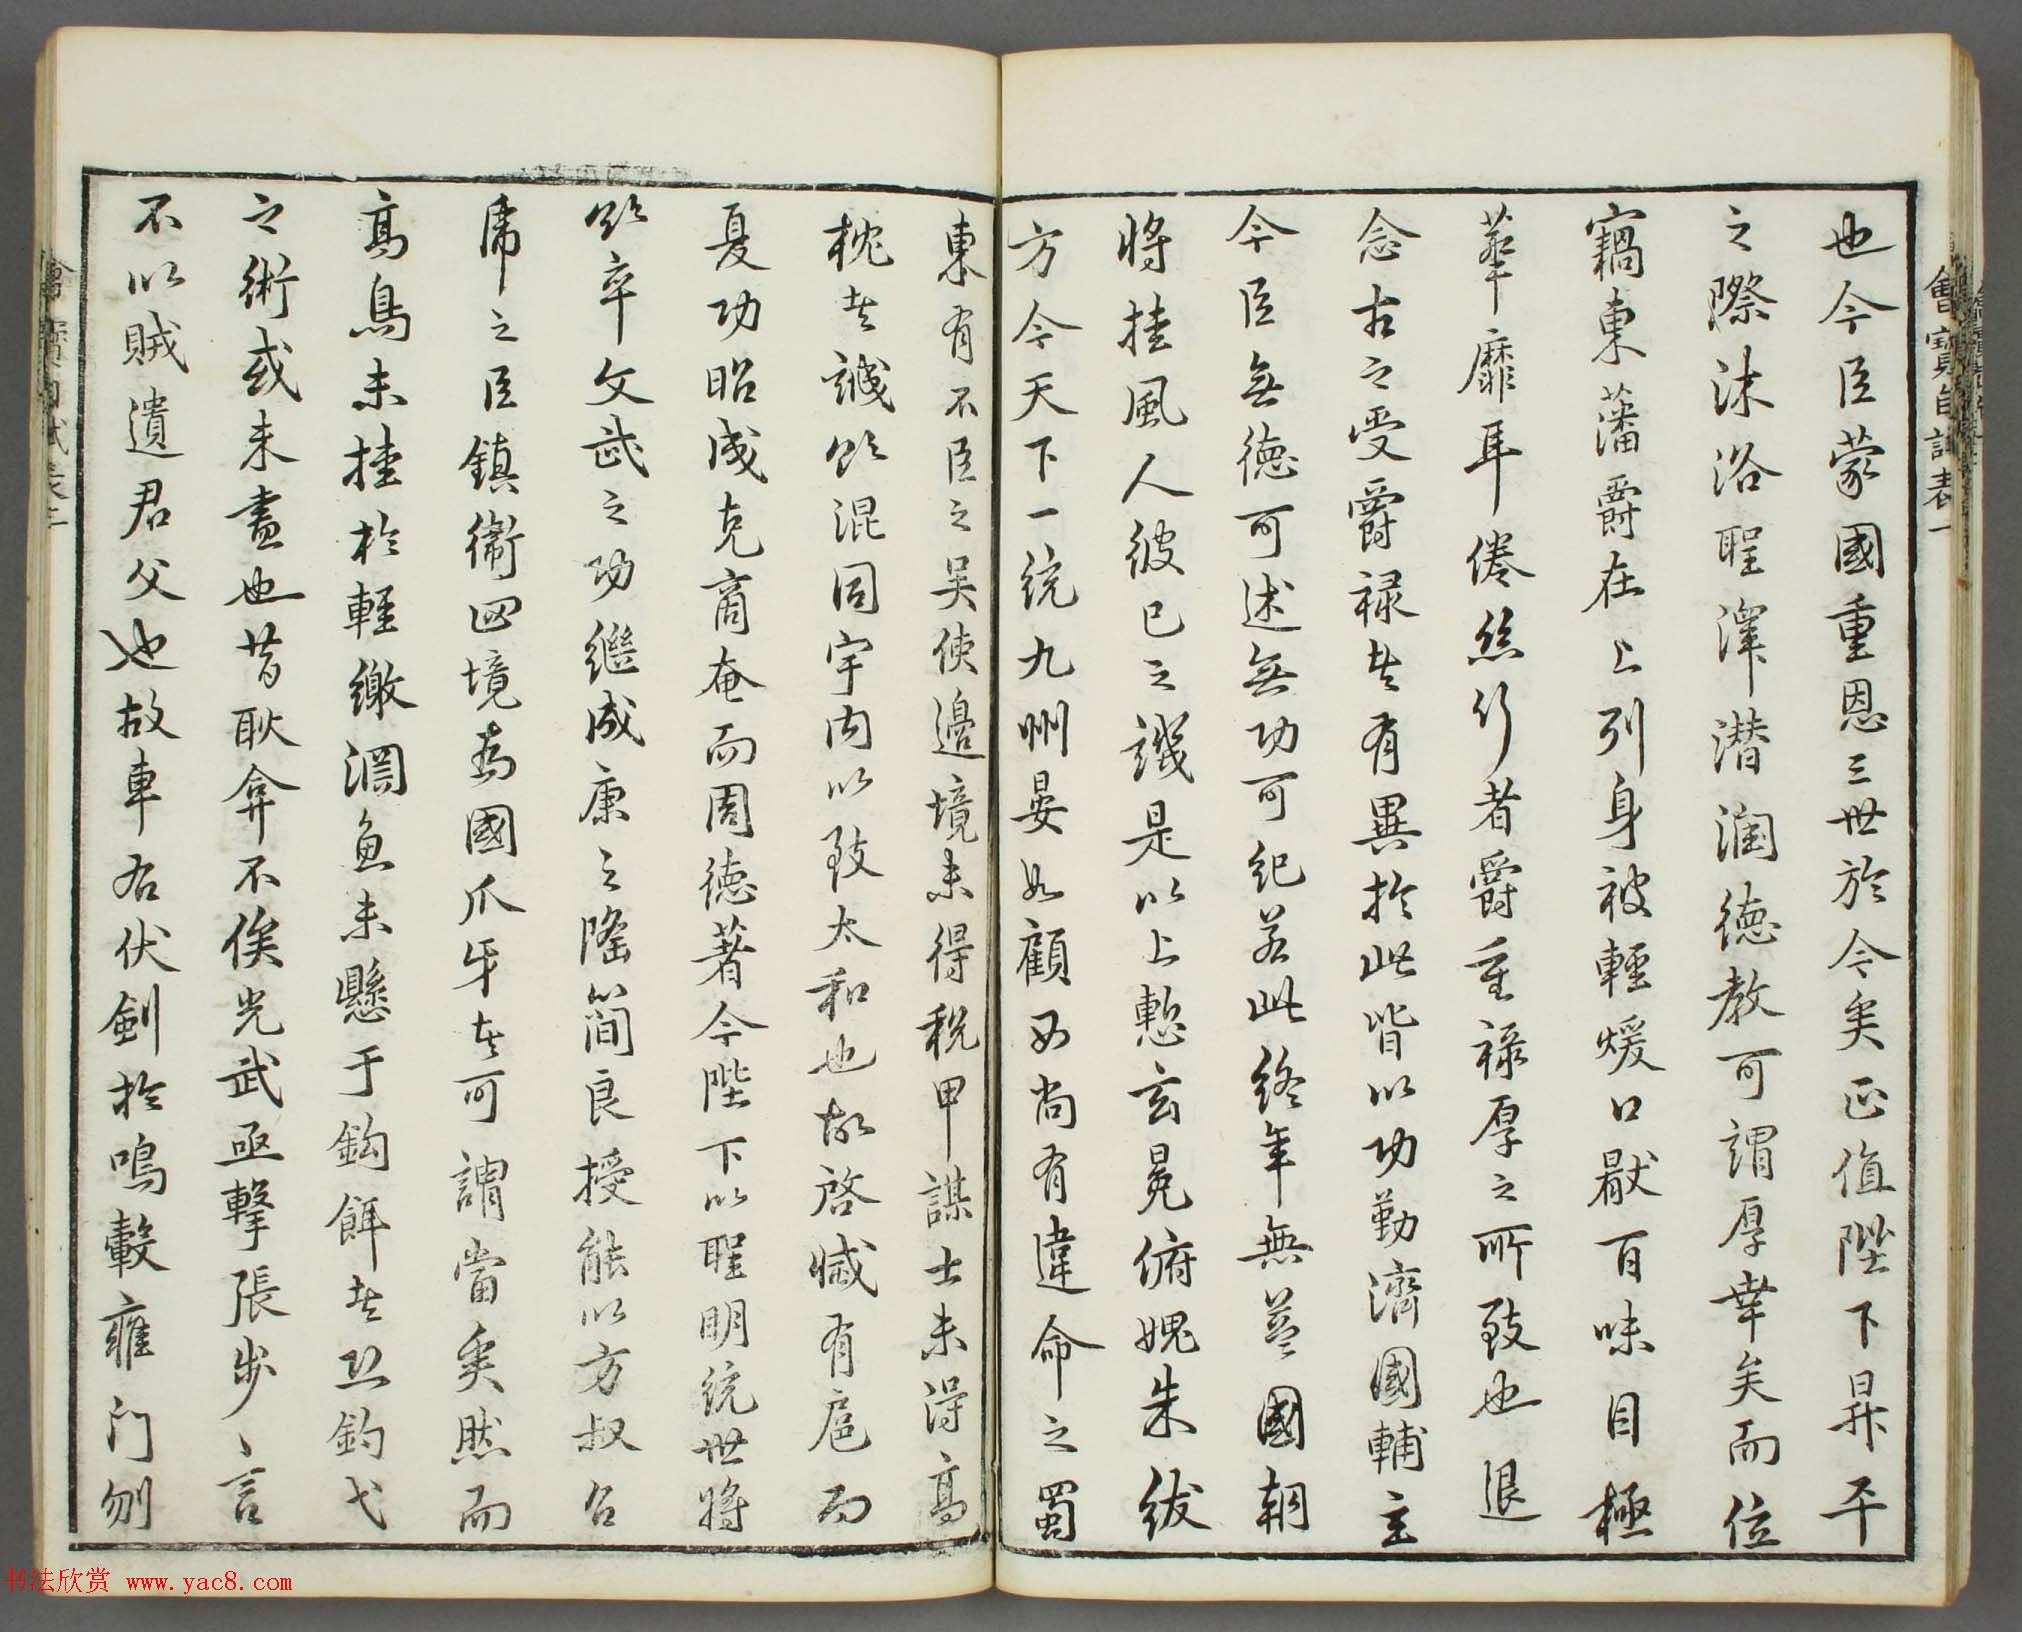 會寶自試表一
也今臣蒙國重恩三世於今矣正值陛下昇平
之際沐浴聖澤潜潤德教可謂厚幸矣而位
竊東藩爵在上列身被輕煖口厭百味目極
華靡耳倦絲竹者爵重祿厚之所致也退
念古之受爵祿者有異於此皆以功勤濟國輔主
今臣無德可述無功可紀若此終年無益國朝
將挂風人彼己之譏是以上慙玄冕俯愧朱紱
方今天下一統九州晏如顧西尚有違命之蜀
東有不臣之吳使邊境未得稅甲謀士未得高
枕者誠欲混同宇内以致太和也故啓滅有扈而
夏功昭成克商奄而周德著今陛下以聖明統世將
欲卒文武之功繼成康之隆簡良授能以方叔召
虎之臣鎮衛四境為國爪牙者可謂當矣然而
高鳥未挂於輕繳淵魚未懸于鉤餌者恐釣弋
之術或未盡也昔耿弇不俟光武亟擊張步〻言
不以賊遺君父也故車右伏劍於鳴轂雍門刎
书法欣赏 www.yac8.com